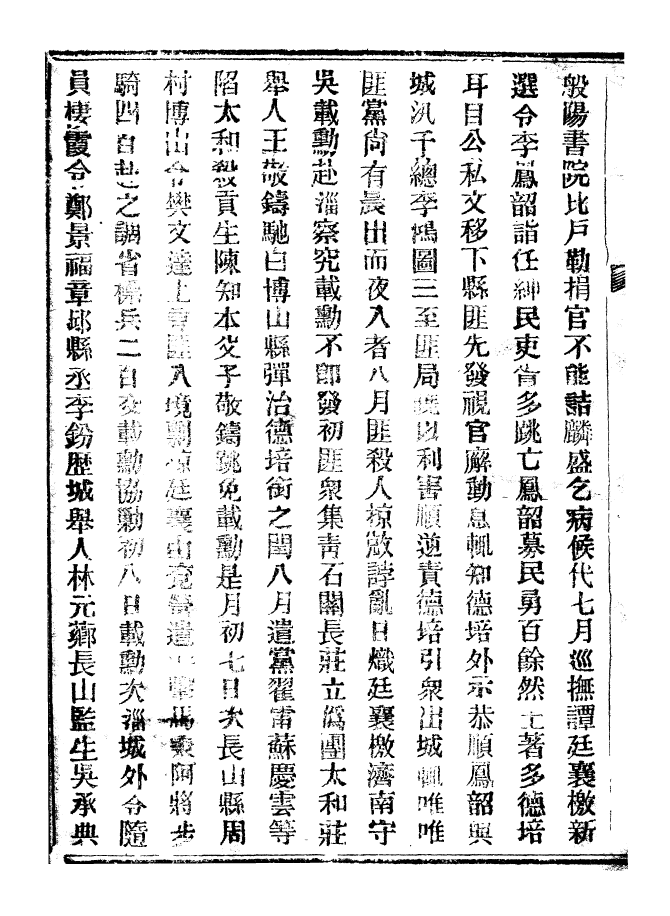 般陽書院比戶勒捐官不能詰麟盛乞病候代七月巡撫譚廷襄檄新
選令李鳳韶詣任紳民吏胥多跳亡鳳韶募民勇百餘然土著多德培
耳目公私文移下縣匪先發視官廨動息輒知德培外示恭順鳳韶與
城汛千總李鴻圖三至匪局 以利害順逆責德培引眾出城輒唯唯
匪黨尙有晨出而夜入者八月匪殺人掠敚誖亂日熾廷襄檄濟南守
吳載勳赴淄察究載勳不卽發初匪衆集靑石關長莊立僞團太和莊
舉人王敬鑄馳白博山縣彈治德培銜之閏八月遣黨翟雷蘇慶雲等
陷太和殺貢生陳知本父子敬鑄跳免載勳是月初七日次長山縣周
村博山令樊文達上書匪入境剽掠廷襄 遣 將步
騎四百赴之調省標兵二百交載勳協勦初八日載勳次淄城外令隨
員棲霞令鄭景福章邱縣丞李鈖歷城舉人林元薌長山監生吳承典